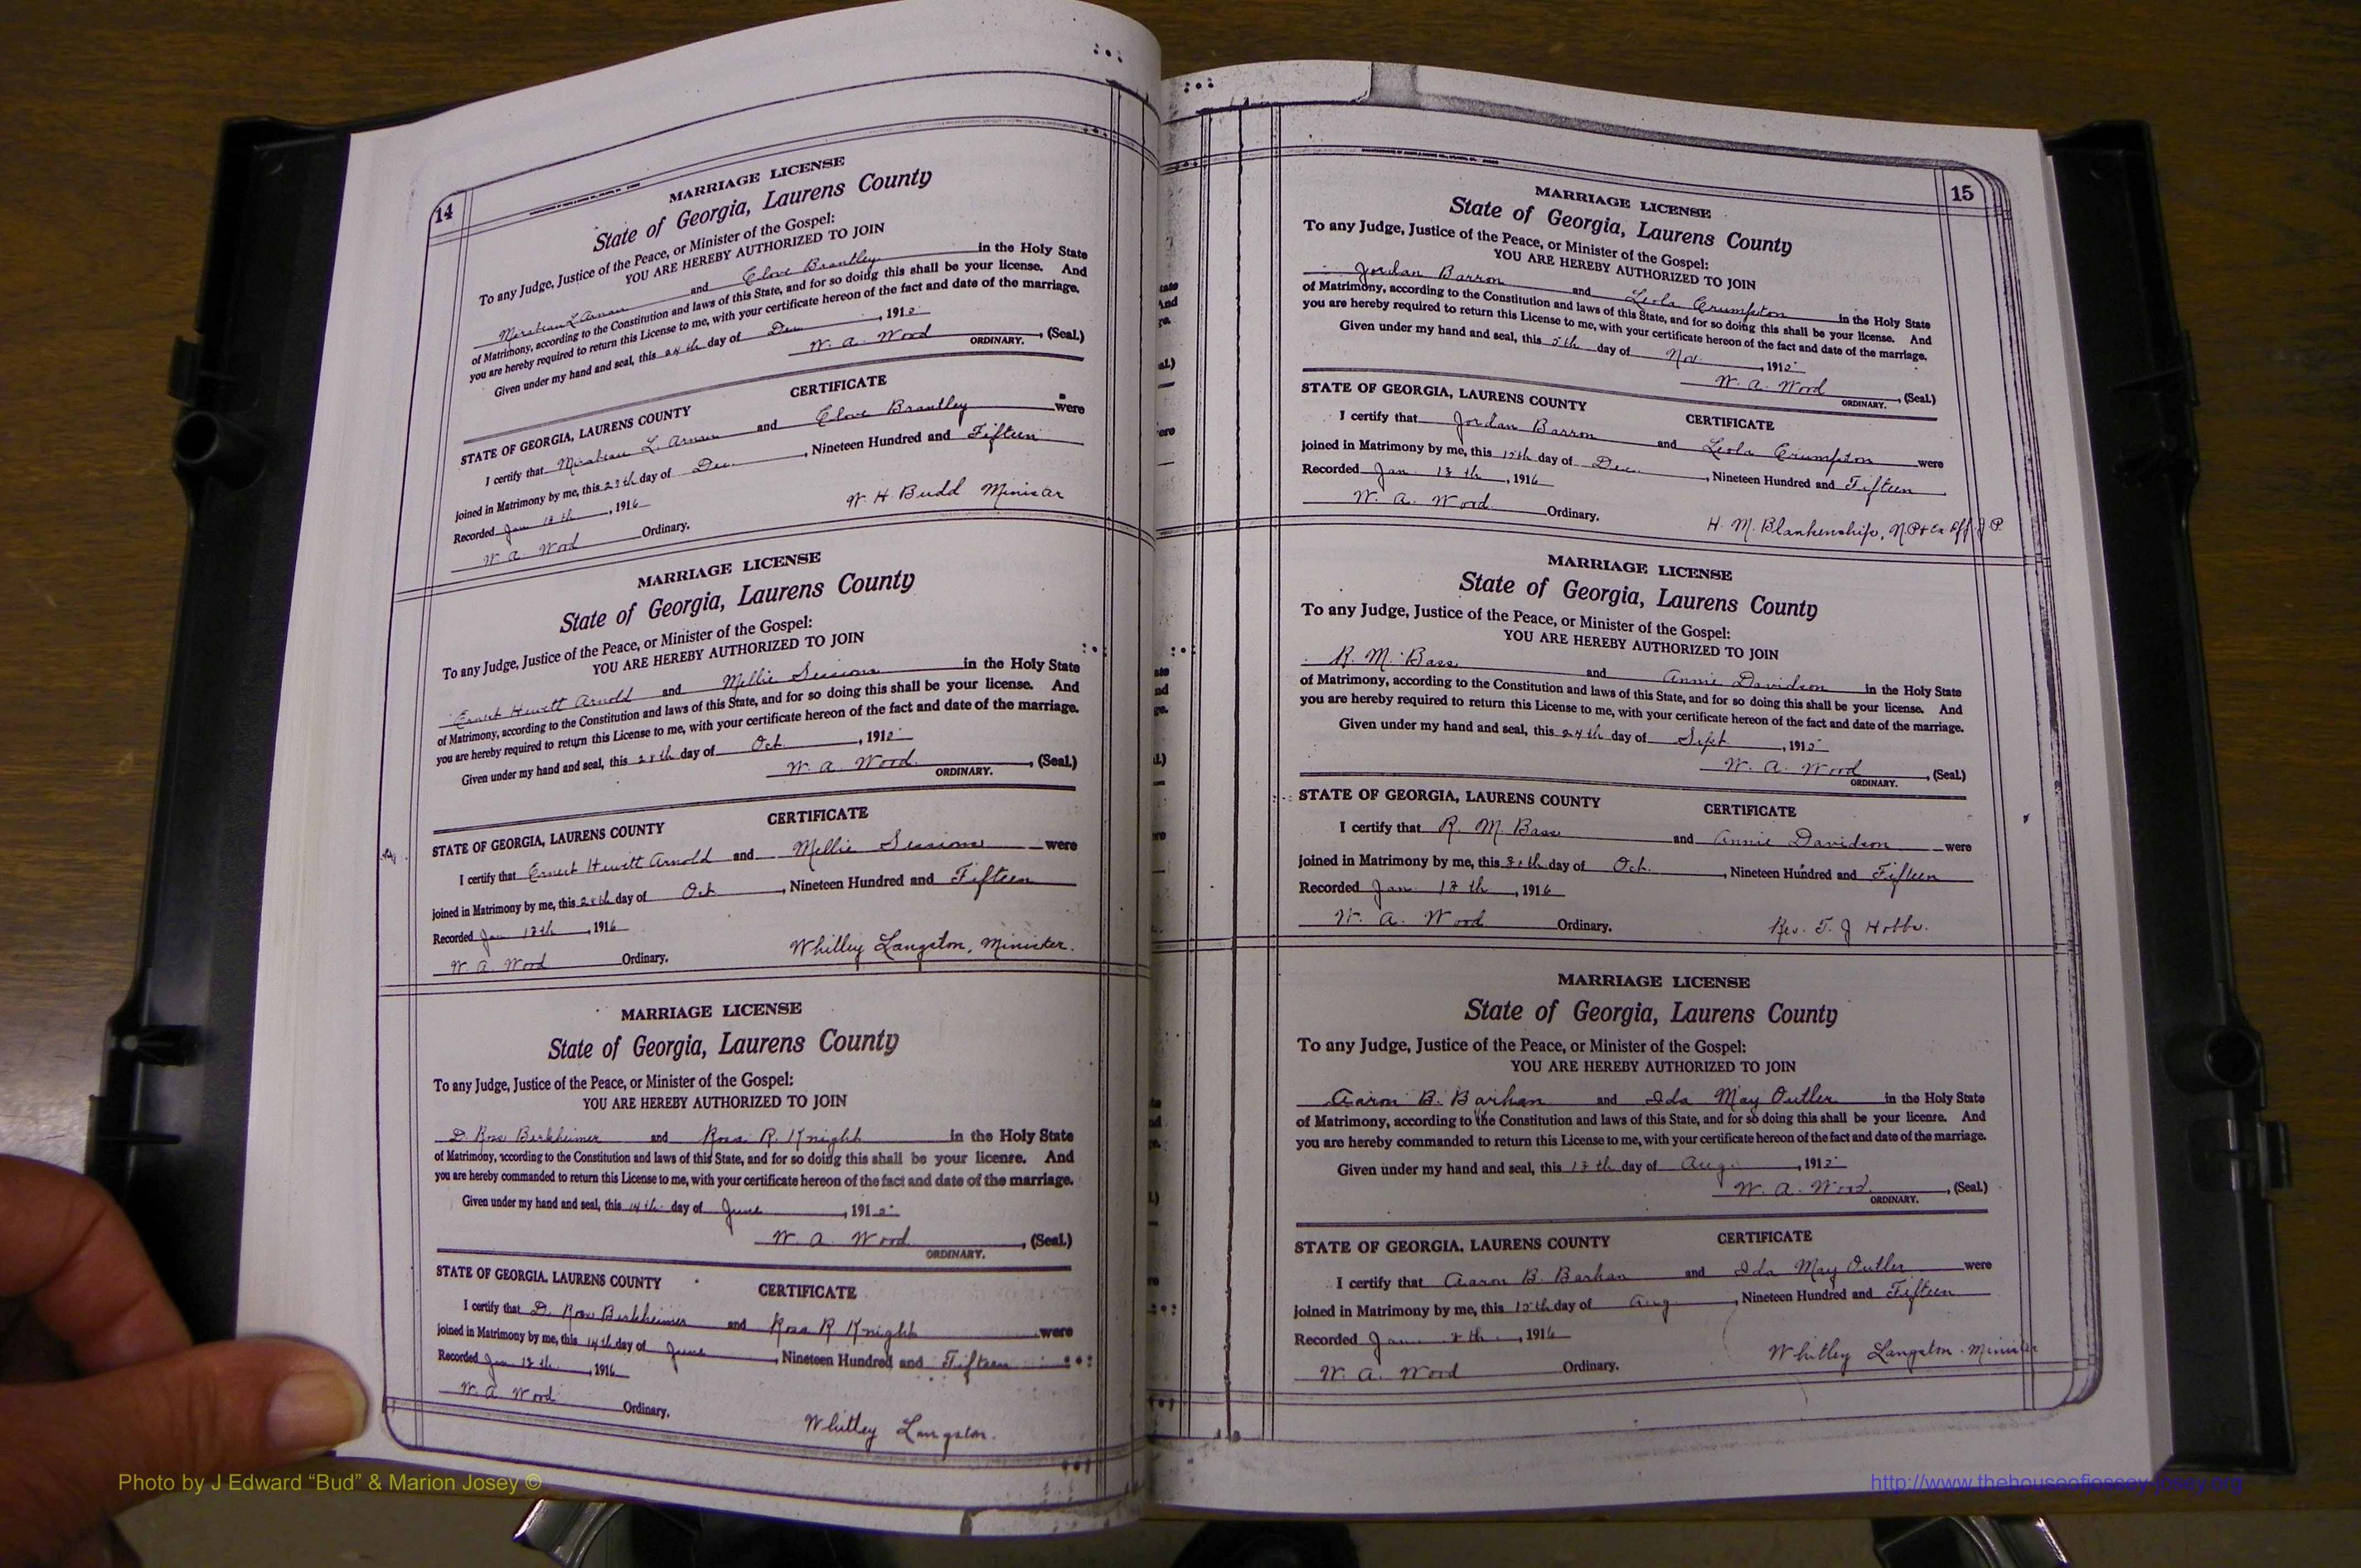 14
MARRIAGE LICENSE
State of Georgia, Laurens County
To any Judge, Justice of the Peace, or Minister of the Gospel:
YOU ARE HEREBY AUTHORIZED TO JOIN
and Clove Brantley in the Holy State
of Matrimony, according to the Constitution and laws of this State, and for so doing this shall be your license. And
you are hereby required to return this License to me, with your certificate hereon of the fact and date of the marriage.
Given under my hand and seal, this 24th day of Dec. , 1915
W. A. Wood , (Seal.)
ORDINARY.
CERTIFICATE
STATE OF GEORGIA, LAURENS COUNTY
I certify that L. and Clove Brantley were
joined in Matrimony by me, this day of Dec. , Nineteen Hundred and Fifteen
Recorded Jan , 1916
W. H. Budd Minister
W. A. Wood Ordinary.
MARRIAGE LICENSE
State of Georgia, Laurens County
To any Judge, Justice of the Peace, or Minister of the Gospel:
YOU ARE HEREBY AUTHORIZED TO JOIN
Ernest Hewitt Arnold and Mellie Sessions in the Holy State
of Matrimony, according to the Constitution and laws of this State, and for so doing this shall be your license. And
you are hereby required to return this License to me, with your certificate hereon of the fact and date of the marriage.
Given under my hand and seal, this 28th day of Oct. , 1915
W. A. Wood , (Seal.)
ORDINARY.
CERTIFICATE
STATE OF GEORGIA, LAURENS COUNTY
I certify that Ernest Hewitt Arnold and Mellie Sessions were
joined in Matrimony by me, this 28th day of Oct , Nineteen Hundred and Fifteen
Recorded Jan , 1916
Whitley Langston, Minister.
W. A. Wood Ordinary.
MARRIAGE LICENSE
State of Georgia, Laurens County
To any Judge, Justice of the Peace, or Minister of the Gospel:
YOU ARE HEREBY AUTHORIZED TO JOIN
D. Ross Berkheimer and Rosa R. Knight in the Holy State
of Matrimony, according to the Constitution and laws of this State, and for so doing this shall be your license. And
you are hereby commanded to return this License to me, with your certificate hereon of the fact and date of the marriage.
Given under my hand and seal, this 14th day of June , 1915
W. A. Wood , (Seal.)
ORDINARY.
STATE OF GEORGIA, LAURENS COUNTY CERTIFICATE
I certify that D. Ross Berkheimer and Rosa R Knight were
joined in Matrimony by me, this 14th day of June , Nineteen Hundred and Fifteen
Recorded Jan , 1916
W. A. Wood Ordinary.
Whitley Langston.
15
MARRIAGE LICENSE
State of Georgia, Laurens County
To any Judge, Justice of the Peace, or Minister of the Gospel:
YOU ARE HEREBY AUTHORIZED TO JOIN
Jordan Barron and Leola Crumpton in the Holy State
of Matrimony, according to the Constitution and laws of this State, and for so doing this shall be your license. And
you are hereby required to return this License to me, with your certificate hereon of the fact and date of the marriage.
Given under my hand and seal, this 5th day of Nov. , 1915
W. A. Wood , (Seal.)
ORDINARY.
STATE OF GEORGIA, LAURENS COUNTY CERTIFICATE
I certify that Jordan Barron and Leola Crumpton were
joined in Matrimony by me, this day of Dec. , Nineteen Hundred and Fifteen
Recorded Jan. , 1916
W. A. Wood Ordinary.
H. M. Blankenship, N.P. & Ex Off. J. P.
MARRIAGE LICENSE
State of Georgia, Laurens County
To any Judge, Justice of the Peace, or Minister of the Gospel:
YOU ARE HEREBY AUTHORIZED TO JOIN
R. M. Bass and Annie Davidson in the Holy State
of Matrimony, according to the Constitution and laws of this State, and for so doing this shall be your license. And
you are hereby required to return this License to me, with your certificate hereon of the fact and date of the marriage.
Given under my hand and seal, this 24th day of Sept. , 1915
W. A. Wood , (Seal.)
ORDINARY.
STATE OF GEORGIA, LAURENS COUNTY CERTIFICATE
I certify that R. M. Bass and Annie Davidson were
joined in Matrimony by me, this day of Oct. , Nineteen Hundred and Fifteen
Recorded Jan. , 1916
W. A. Wood Ordinary.
Rev. T. J Hobbs.
MARRIAGE LICENSE
State of Georgia, Laurens County
To any Judge, Justice of the Peace, or Minister of the Gospel:
YOU ARE HEREBY AUTHORIZED TO JOIN
Aaron B. Barhan and Ida May Outler in the Holy State
of Matrimony, according to the Constitution and laws of this State, and for so doing this shall be your license. And
you are hereby commanded to return this License to me, with your certificate hereon of the fact and date of the marriage.
Given under my hand and seal, this day of Aug. , 1915
W. A. Wood , (Seal.)
ORDINARY.
STATE OF GEORGIA, LAURENS COUNTY CERTIFICATE
I certify that Aaron B. Barhan and Ida May Outler were
joined in Matrimony by me, this day of Aug , Nineteen Hundred and Fifteen
Recorded Jan. , 1916
W. A. Wood Ordinary.
Whitley Langston. Minister
Photo by J Edward “Bud” & Marion Josey ©
http://www.thehouseofjossey-josey.org